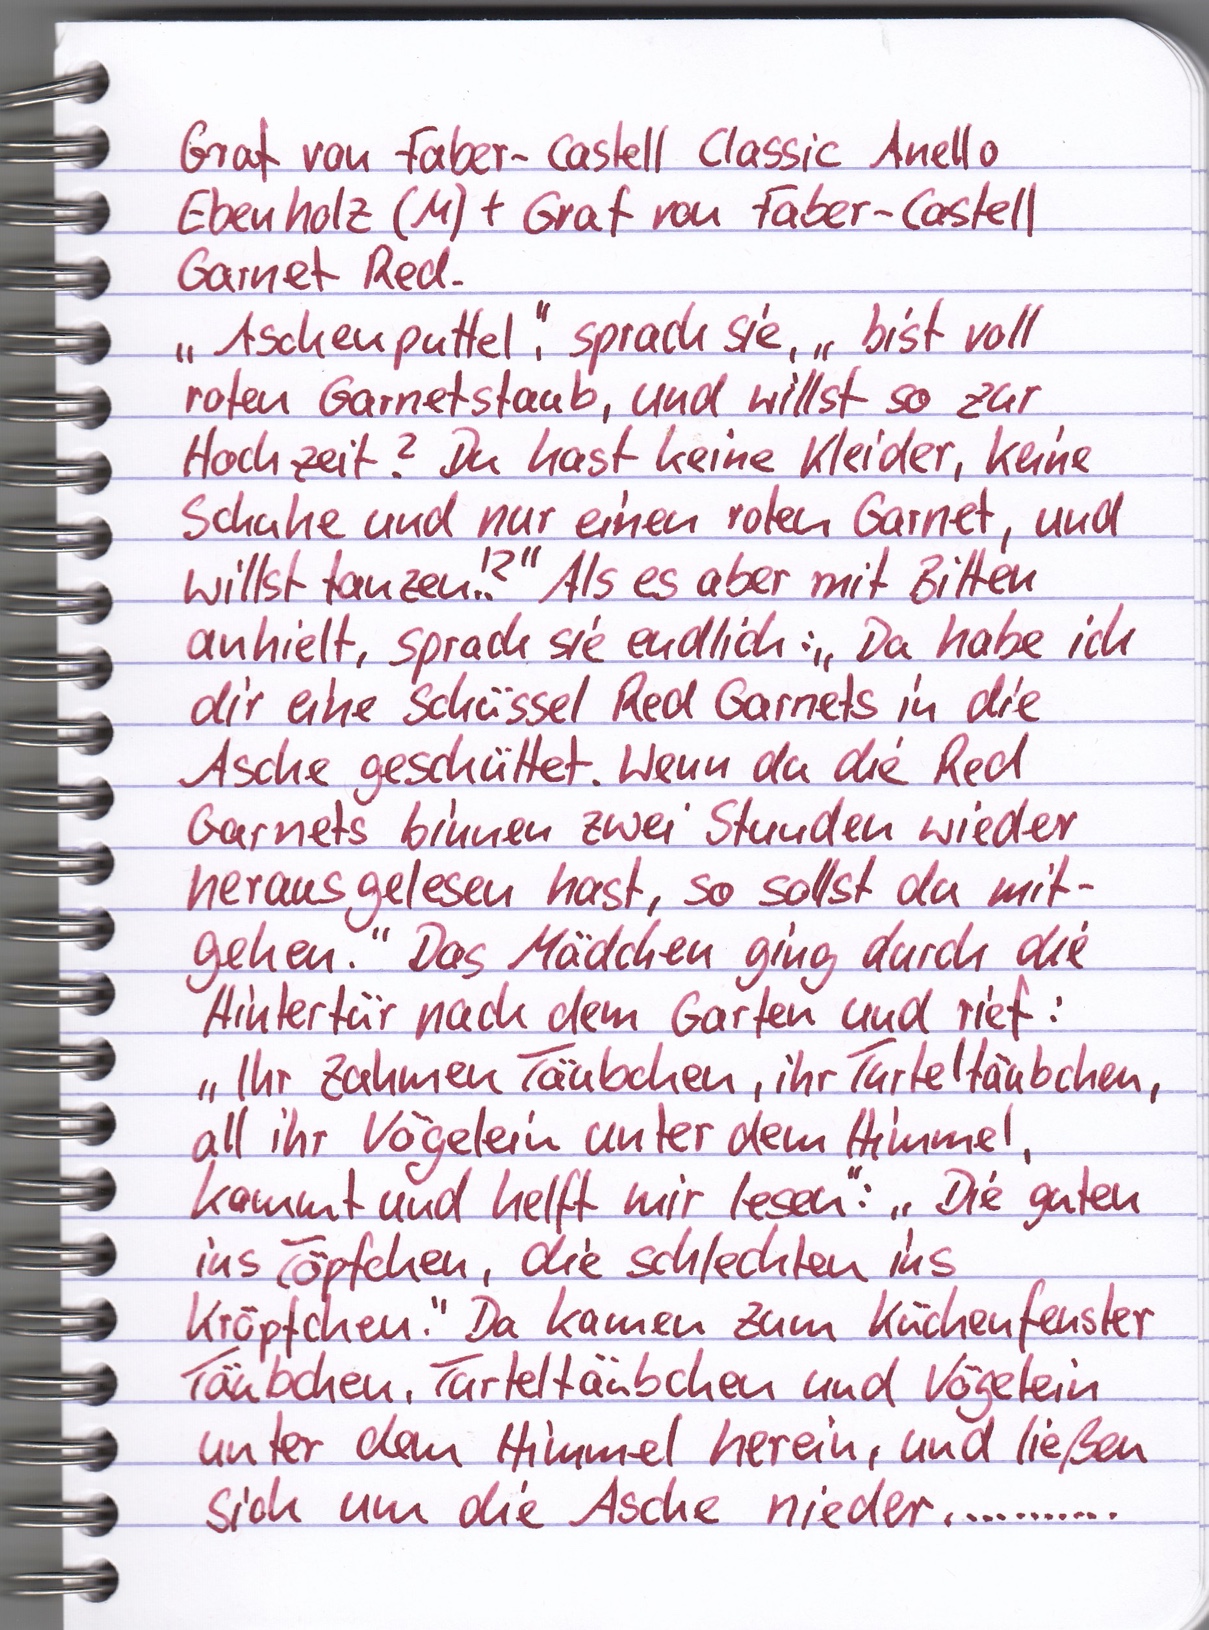 Graf von Faber-Castell Classic Anello
Ebenholz (M) + Graf von Faber-Castell
Garnet Red.
„Aschenputtel“, sprach sie, „bist voll
roten Garnetstaub, und willst so zur
Hochzeit? Du hast keine Kleider, keine
Schuhe und nur einen roten Garnet, und
willst tanzen..!?“ Als es aber mit Bitten
anhielt, sprach sie endlich: „Da habe ich
dir eine Schüssel Red Garnets in die
Asche geschüttet. Wenn du die Red
Garnets binnen zwei Stunden wieder
herausgelesen hast, so sollst du mit-
gehen.“ Das Mädchen ging durch die
Hintertür nach dem Garten und rief:
„Ihr Zahmen Täubchen, ihr Turteltäubchen,
all ihr Vögelein unter dem Himmel,
kommt und helft mir lesen“: „Die guten
ins Töpfchen, die schlechten ins
Kröpfchen.“ Da kamen zum Küchenfenster
Täubchen, Turteltäubchen und Vögelein
unter dem Himmel herein, und ließen
sich um die Asche nieder...........